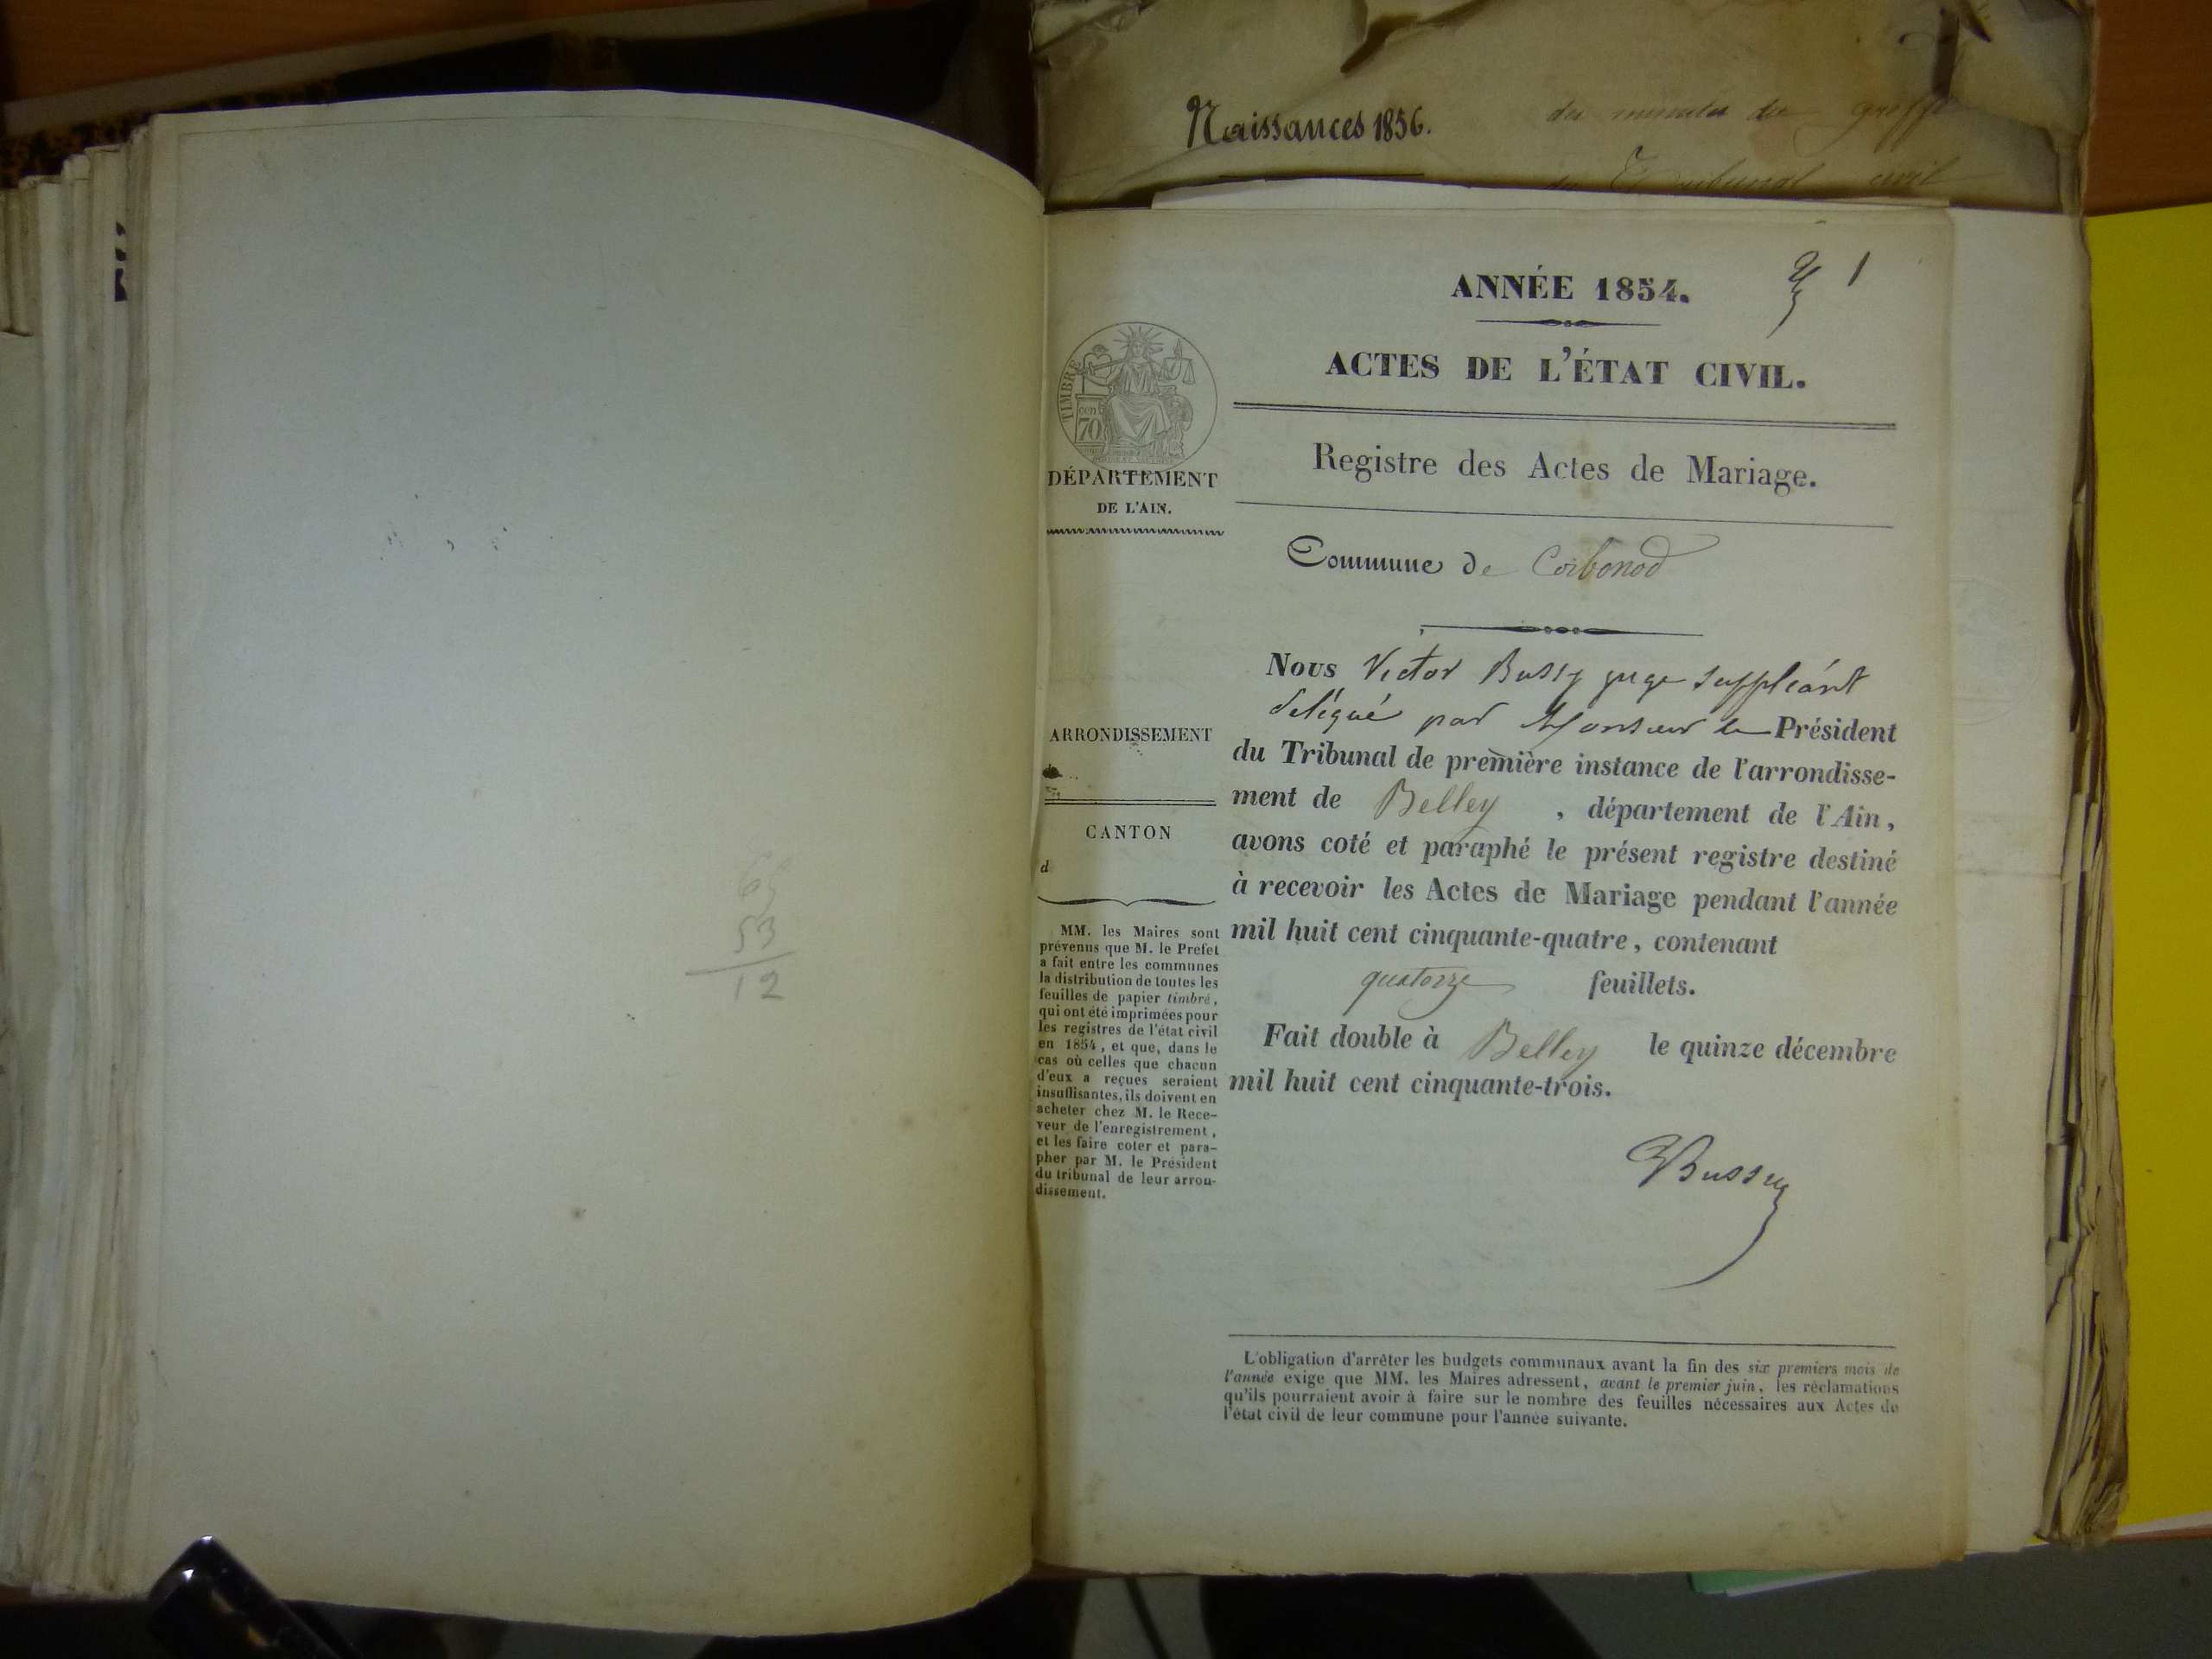 Naissances 1856.
des minutes du greffe
du Tribunal civil
65
53
12
1
ANNÉE 1854.
ACTES DE L'ÉTAT CIVIL.
Registre des Actes de Mariage.
TIMBRE
cen
70
DÉPARTEMENT
DE L'AIN.
Commune de Corbonod
Nous Victor Bussy juge suppléant
délégué par Monsieur le Président
du Tribunal de première instance de l'arrondisse-
ment de Belley , département de l'Ain,
avons coté et paraphé le présent registre destiné
à recevoir les Actes de Mariage pendant l'année
mil huit cent cinquante-quatre, contenant
quatorze feuillets.
Fait double à Belley le quinze décembre
mil huit cent cinquante-trois.
Bussy
ARRONDISSEMENT
CANTON
d
MM. les Maires sont
prévenus que M. le Préfet
a fait entre les communes
la distribution de toutes les
feuilles de papier timbré,
qui ont été imprimées pour
les registres de l'état civil
en 1854, et que, dans le
cas où celles que chacun
d'eux a reçues seraient
insuffisantes, ils doivent en
acheter chez M. le Rece-
veur de l'enregistrement,
et les faire coter et para-
pher par M. le Président
du tribunal de leur arron-
dissement.
L'obligation d'arrêter les budgets communaux avant la fin des six premiers mois de
l'année exige que MM. les Maires adressent, avant le premier juin, les réclamations
qu'ils pourraient avoir à faire sur le nombre des feuilles nécessaires aux Actes de
l'état civil de leur commune pour l'année suivante.